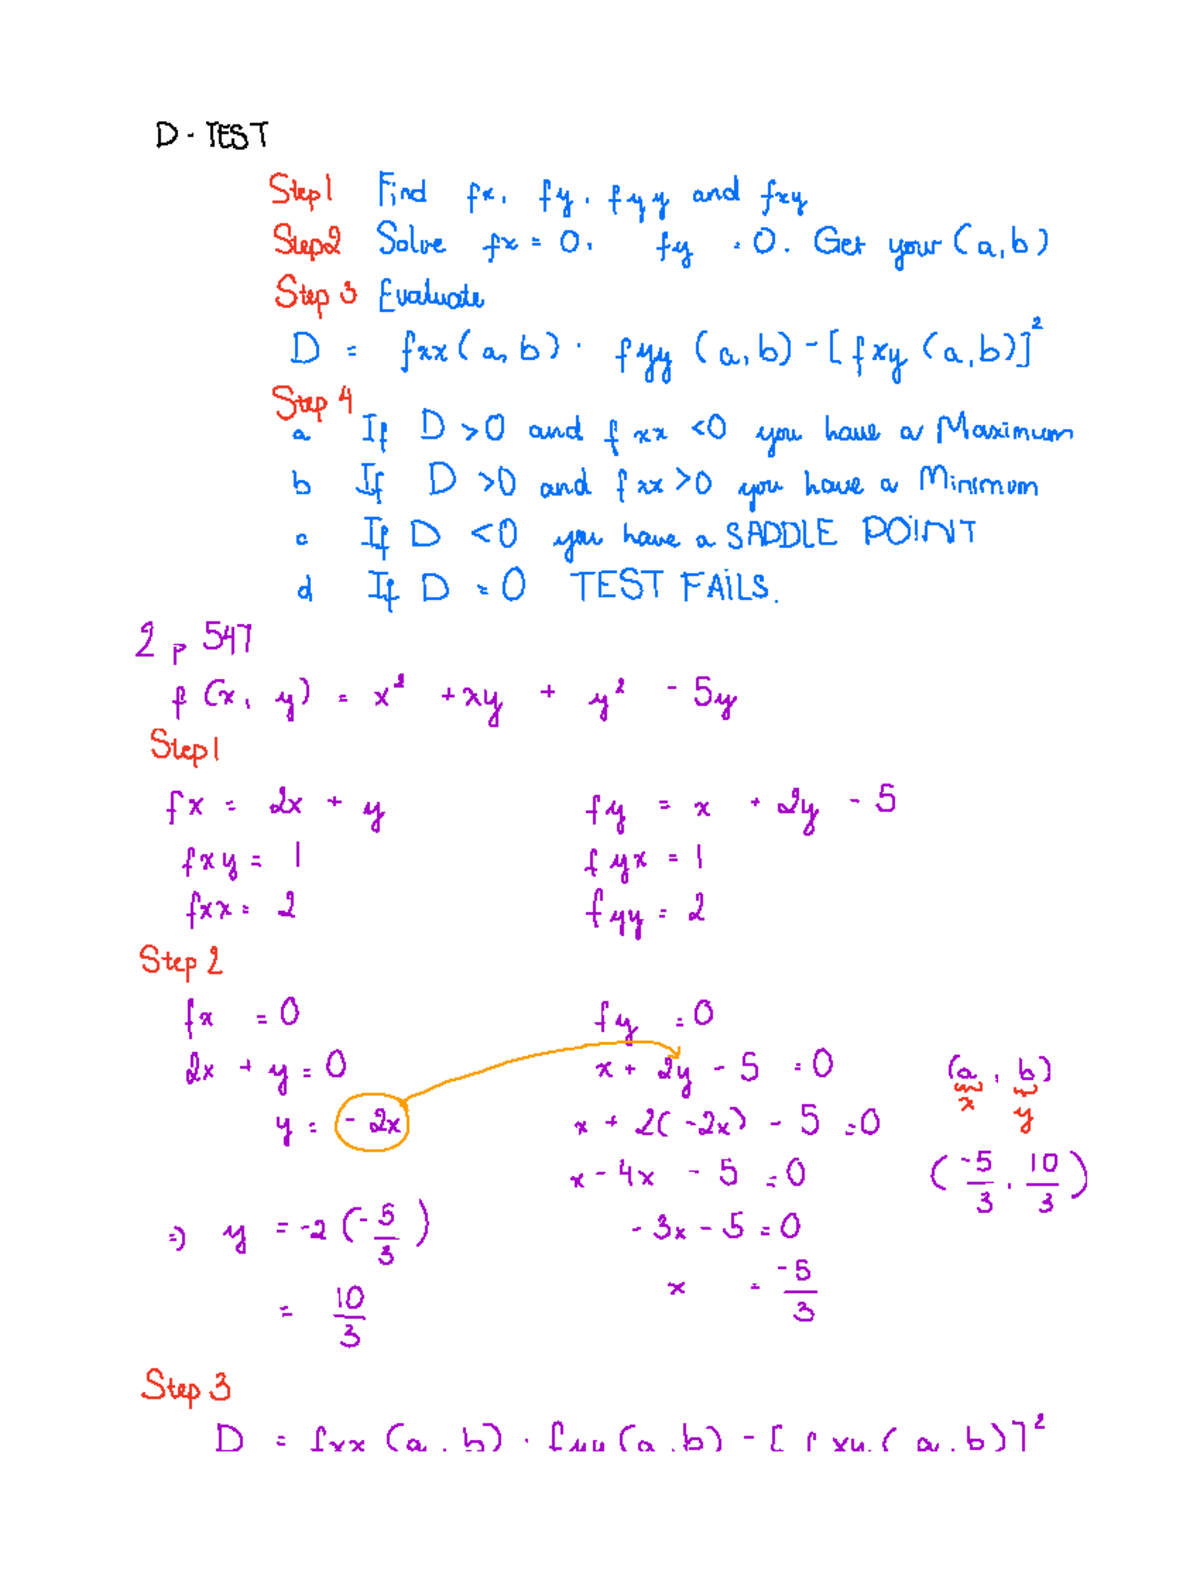 D - TEST
Step 1 Find fx, fy, fyy and fxy
Step 2 Solve fx = 0, fy = 0. Get your (a, b)
Step 3 Evaluate
D = fxx (a, b) · fyy (a, b) - [fxy (a, b)]²
Step 4
a If D > 0 and fxx < 0 you have a Maximum
b If D > 0 and fxx > 0 you have a Minimum
c If D < 0 you have a SADDLE POINT
d If D = 0 TEST FAILS.
2 p 547
f (x, y) = x² + xy + y² - 5y
Step 1
fx = 2x + y fy = x + 2y - 5
fxy = 1 fyx = 1
fxx = 2 fyy = 2
Step 2
fx = 0 fy = 0
2x + y = 0 x + 2y - 5 = 0 (a, b)
x y
y = - 2x x + 2(-2x) - 5 = 0
x - 4x - 5 = 0 (-5/3, 10/3)
=) y = -2 (-5/3) - 3x - 5 = 0
= 10/3 x = -5/3
Step 3
D = fxx (a, b) · fyy (a, b) - [fxy (a, b)]²